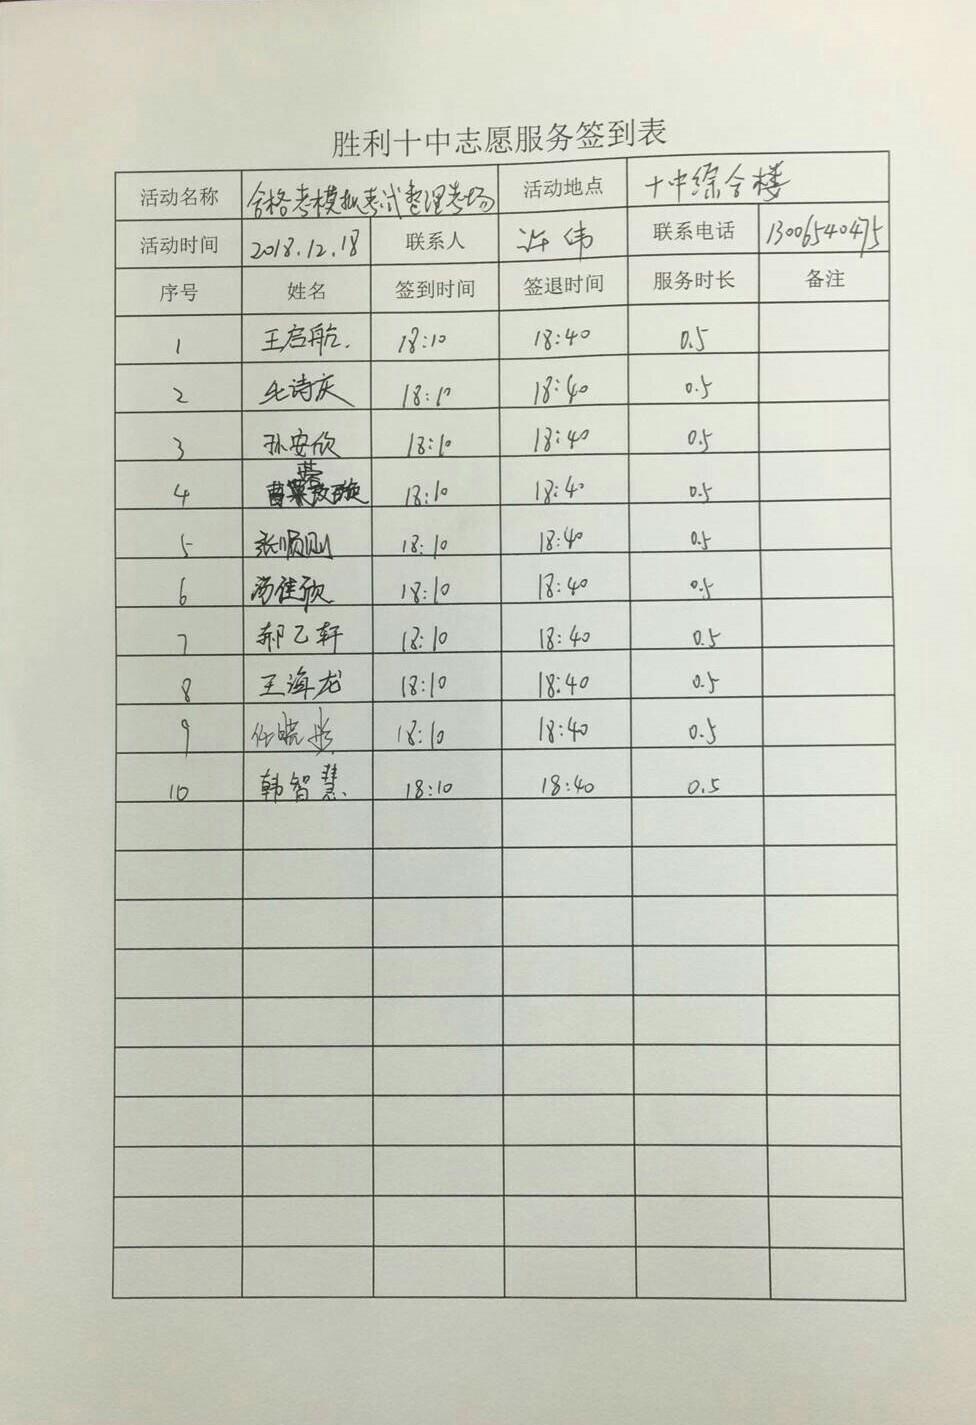 胜利十中志愿服务签到表
活动名称 合格考模拟考试整理考场 活动地点 十中综合楼
活动时间 2018.12.18 联系人 许伟 联系电话 13006540475
序号 姓名 签到时间 签退时间 服务时长 备注
1 王启航. 18:10 18:40 0.5
2 毛诗庆 18:10 18:40 0.5
3 孙安欣 18:10 18:40 0.5
4 18:10 18:40 0.5
5 张顺则 18:10 18:40 0.5
6 汤佳欣 18:10 18:40 0.5
7 郝乙轩 18:10 18:40 0.5
8 王海龙 18:10 18:40 0.5
9 任晓彤 18:10 18:40 0.5
10 韩智慧. 18:10 18:40 0.5